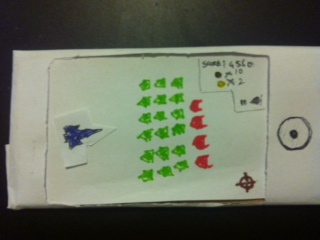 SCORE: 4560
x 10
x 2